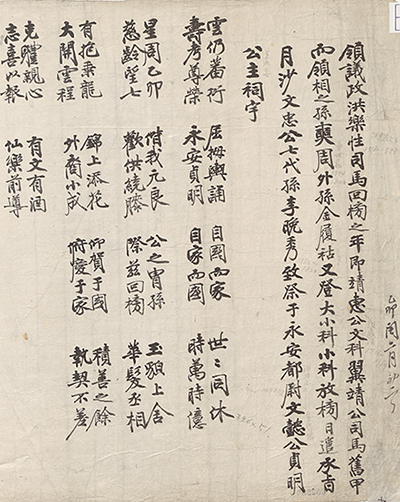 領議政洪樂性司馬回榜之年卽靖惠公文科翼靖公司馬舊甲
而領相之孫奭周外孫金履祜又登大小科小科放榜日遣承旨
月沙文忠公七代孫李晩秀致祭于永安都尉文懿公貞明
公主祠宇
雲仍蕃衍 屈拇輿誦 自國而家 世〻同休
壽考尊榮 永安貞明 自家而國 時萬時億
星周乙卯 偕我元良 公之胄孫 玉貌上舍
慈齡望七 歡洪繞膝 際玆回榜 華髮丞相
有抱乘龍 錦上添花 仰賀于國 積善之餘
大開雲程 外裔小成 俯愛于家 執契不差
克軆親心 有文有酒
志喜以報 仙樂前導
乙卯閏